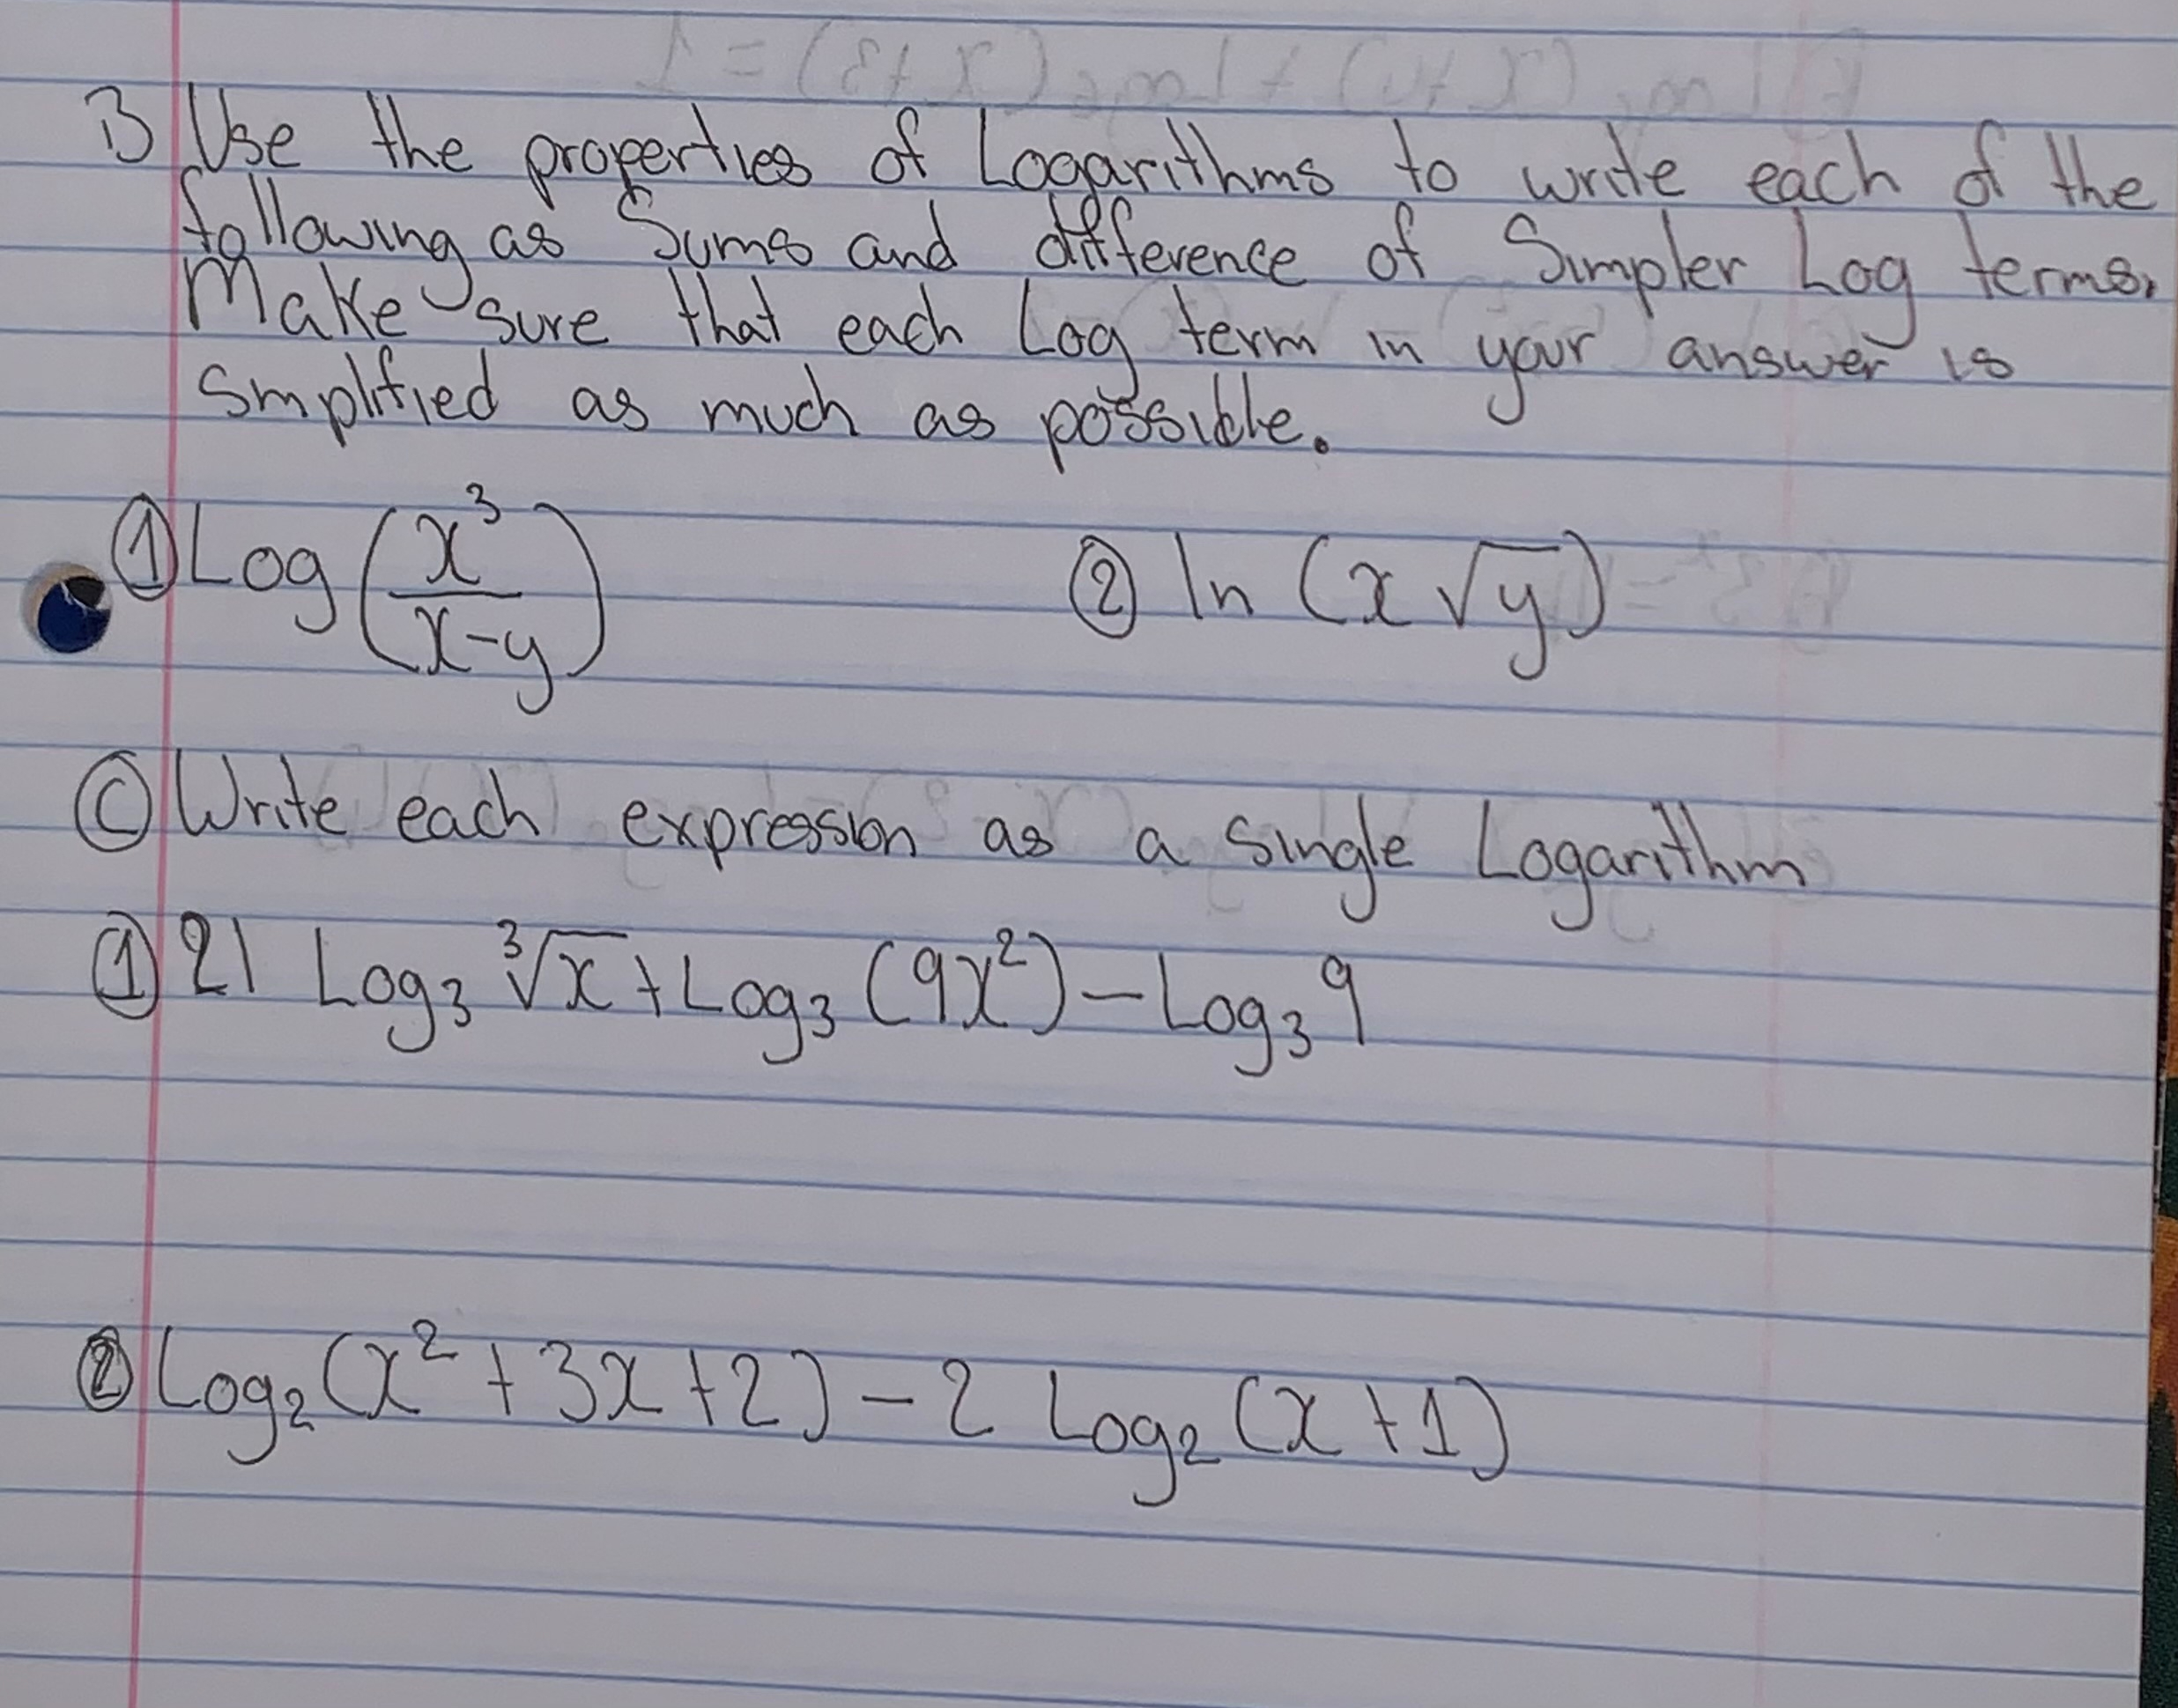 B Use the properties of Logarithms to write each of the
following as Sums and difference of Simpler Log terms.
Make sure that each Log term in your answer is
Smplified as much as possible.
① Log (x³/(x-y)) ② ln (x √y)
Ⓒ Write each expression as a Single Logarithm
① 21 Log₃ ∛x + Log₃ (9x²) - Log₃ 9
② Log₂ (x² + 3x + 2) - 2 Log₂ (x + 1)